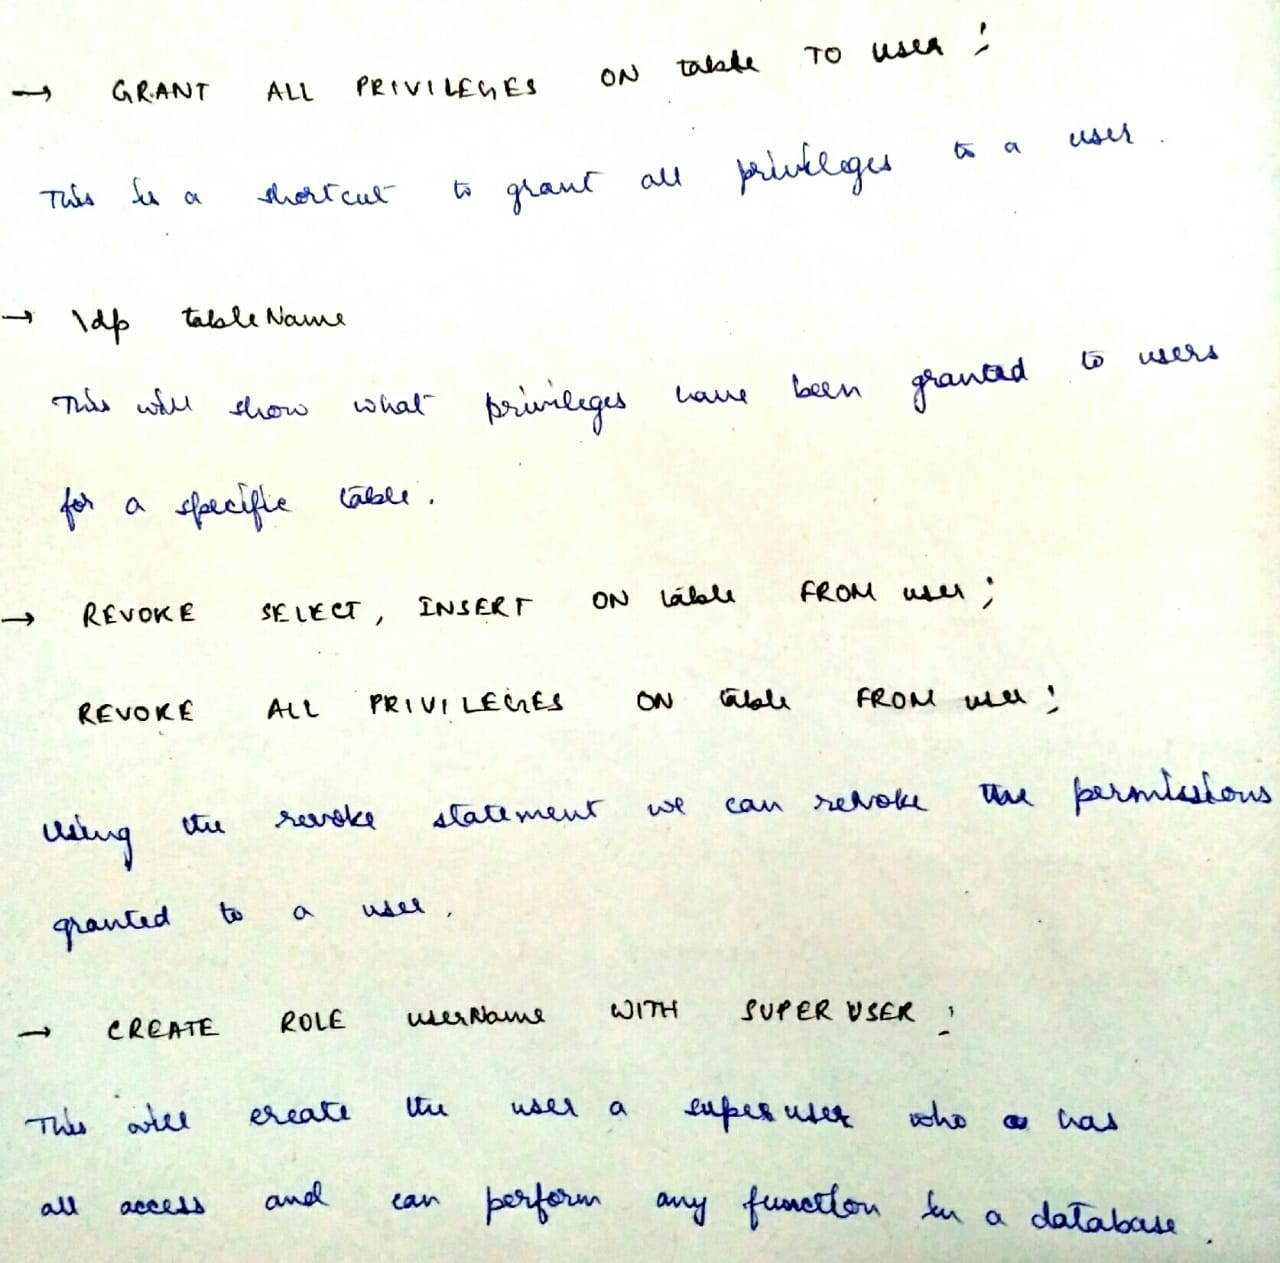 → GRANT ALL PRIVILEGES ON table TO user ;
This is a shortcut to grant all privileges to a user .
→ \dp tableName
This will show what privileges have been granted to users
for a specific table .
→ REVOKE SELECT , INSERT ON table FROM user ;
REVOKE ALL PRIVILEGES ON table FROM user ;
Using the revoke statement we can revoke the permissions
granted to a user .
→ CREATE ROLE userName WITH SUPERUSER ;
This will create the user a superuser who has
all access and can perform any function in a database .